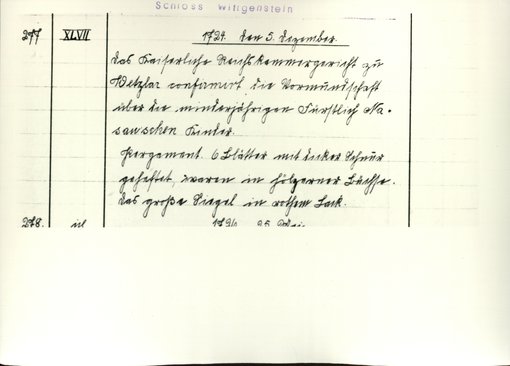 Schloss Wittgenstein
277 XLVII 1724. den 5. Dezember.
Das Kaiserliche Reichskammergericht zu
Wetzlar confirmirt die Vormundschaft
über die minderjährigen Fürstlich Na-
sauischen Kinder.
Pergament 6 Blätter mit dicker Schnur
geheftet, waren in hölzerner Büchse.
Das große Siegel in rothem Lack.
278. 25 Mai